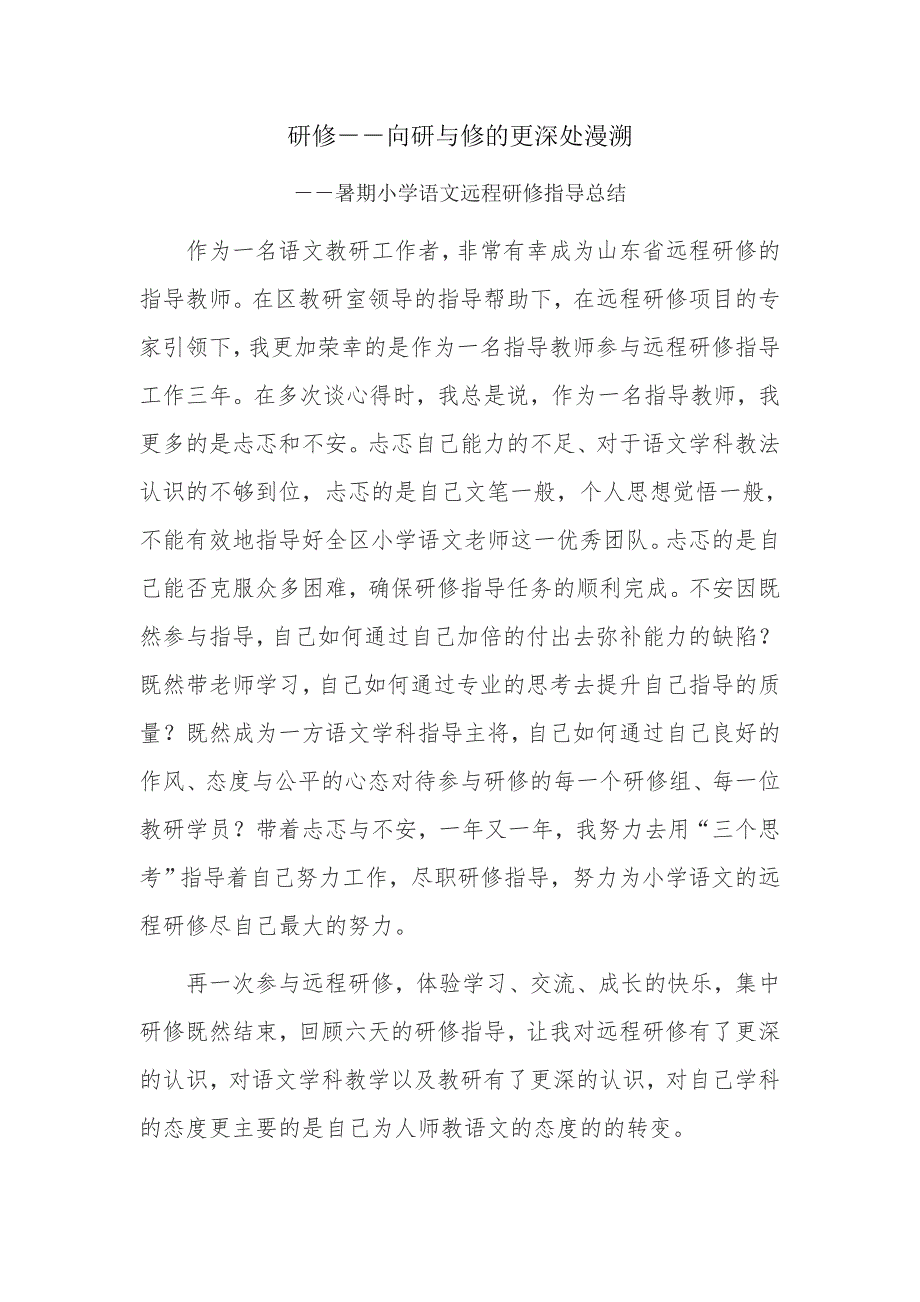 研修――向研与修的更深处漫溯
――暑期小学语文远程研修指导总结
作为一名语文教研工作者，非常有幸成为山东省远程研修的
指导教师。在区教研室领导的指导帮助下，在远程研修项目的专
家引领下，我更加荣幸的是作为一名指导教师参与远程研修指导
工作三年。在多次谈心得时，我总是说，作为一名指导教师，我
更多的是忐忑和不安。忐忑自己能力的不足、对于语文学科教法
认识的不够到位，忐忑的是自己文笔一般，个人思想觉悟一般，
不能有效地指导好全区小学语文老师这一优秀团队。忐忑的是自
己能否克服众多困难，确保研修指导任务的顺利完成。不安因既
然参与指导，自己如何通过自己加倍的付出去弥补能力的缺陷？
既然带老师学习，自己如何通过专业的思考去提升自己指导的质
量？既然成为一方语文学科指导主将，自己如何通过自己良好的
作风、态度与公平的心态对待参与研修的每一个研修组、每一位
教研学员？带着忐忑与不安，一年又一年，我努力去用“三个思
考”指导着自己努力工作，尽职研修指导，努力为小学语文的远
程研修尽自己最大的努力。
再一次参与远程研修，体验学习、交流、成长的快乐，集中
研修既然结束，回顾六天的研修指导，让我对远程研修有了更深
的认识，对语文学科教学以及教研有了更深的认识，对自己学科
的态度更主要的是自己为人师教语文的态度的的转变。